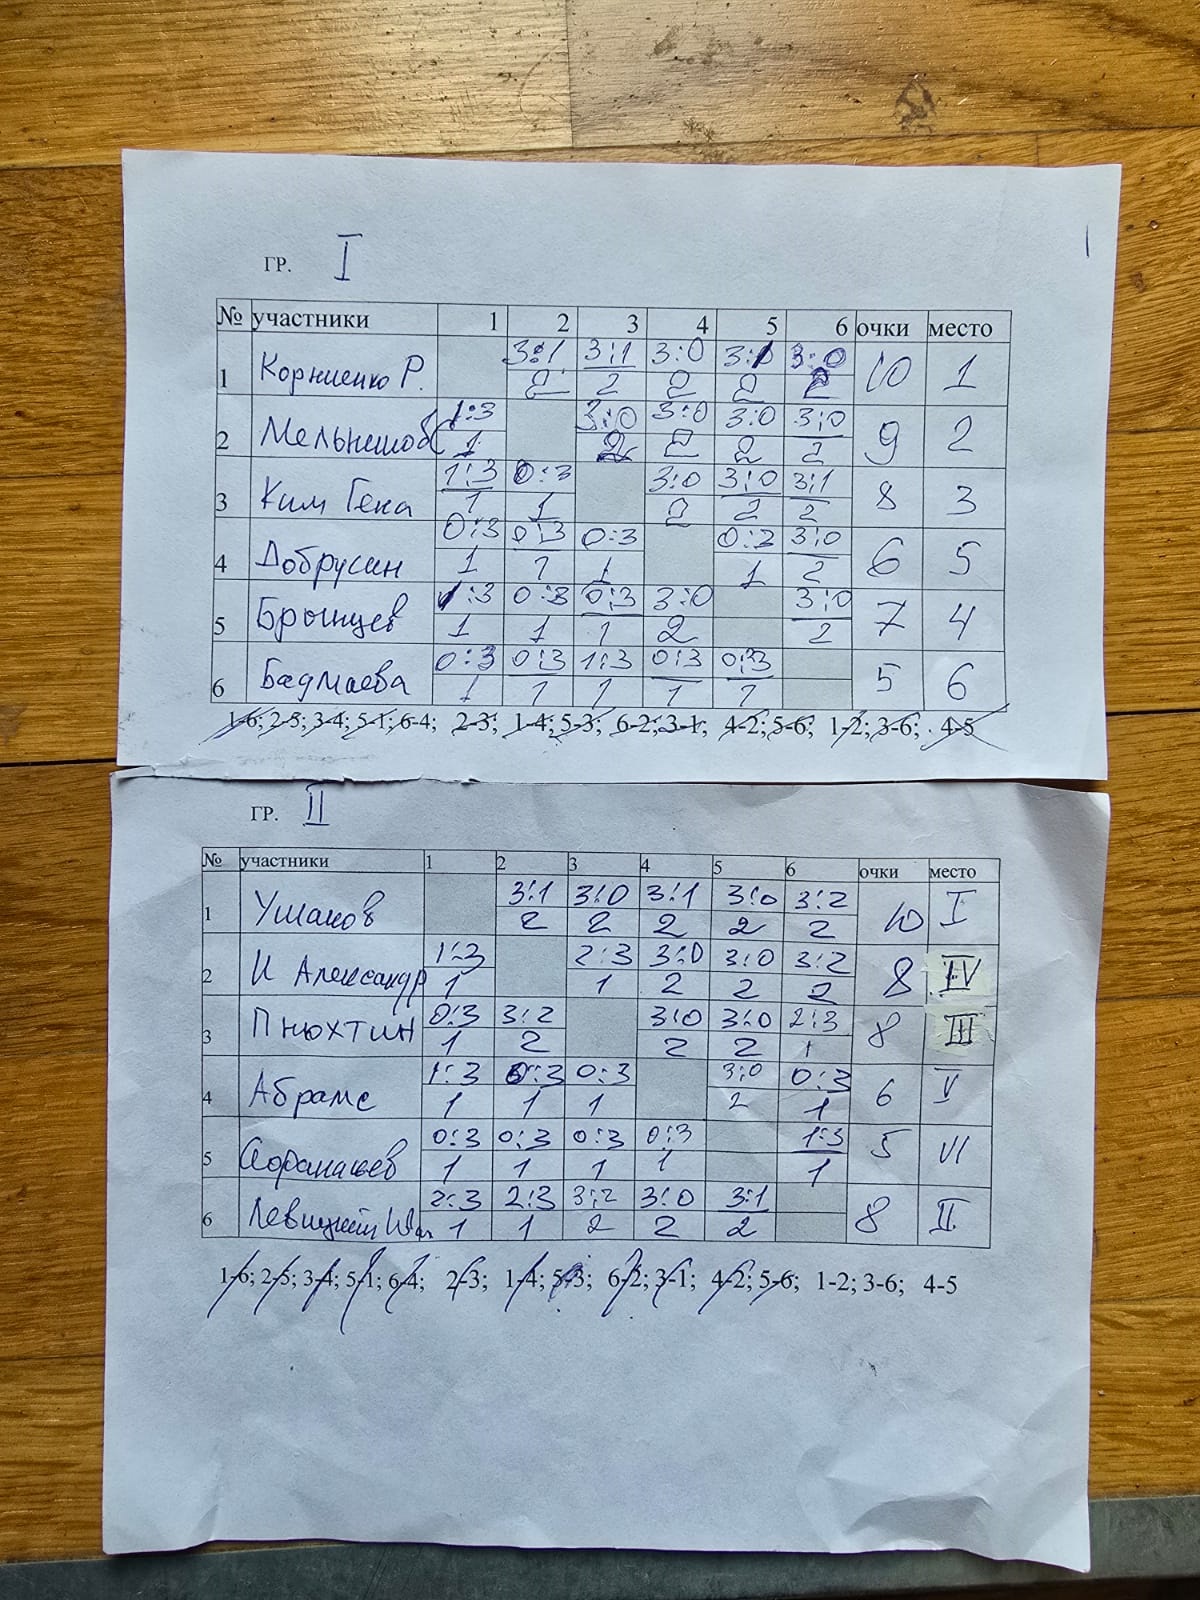 ГР. I
№ участники 1 2 3 4 5 6 очки место
3:1 3:1 3:0 3:1 3:0
1 Корниенко Р. 2 2 2 2 2 10 1
1:3 3:0 3:0 3:0 3:0
2 1 2 2 2 2 9 2
1:3 0:3 3:0 3:0 3:1
3 Ким Гена 1 1 2 2 2 8 3
0:3 0:3 0:3 0:3 3:0
4 Добрусин 1 1 1 1 2 6 5
1:3 0:3 0:3 3:0 3:0
5 Брынцев 1 1 1 2 2 7 4
0:3 0:3 1:3 0:3 0:3
6 Бадмаева 1 1 1 1 1 5 6
1-6; 2-5; 3-4; 5-1; 6-4; 2-3; 1-4; 5-3; 6-2; 3-1; 4-2; 5-6; 1-2; 3-6; 4-5
ГР. II
№ участники 1 2 3 4 5 6 очки место
3:1 3:0 3:1 3:0 3:2
1 Ушаков 2 2 2 2 2 10 I
1:3 2:3 3:0 3:0 3:2
2 И Александр 1 1 2 2 2 8 IV
0:3 3:2 3:0 3:0 2:3
3 Пнюхтин 1 2 2 2 1 8 III
1:3 0:3 0:3 3:0 0:3
4 Абрамс 1 1 1 2 1 6 V
0:3 0:3 0:3 0:3 1:3
5 1 1 1 1 1 5 VI
2:3 2:3 3:2 3:0 3:1
6 Левицкий 1 1 2 2 2 8 II
1-6; 2-5; 3-4; 5-1; 6-4; 2-3; 1-4; 5-3; 6-2; 3-1; 4-2; 5-6; 1-2; 3-6; 4-5